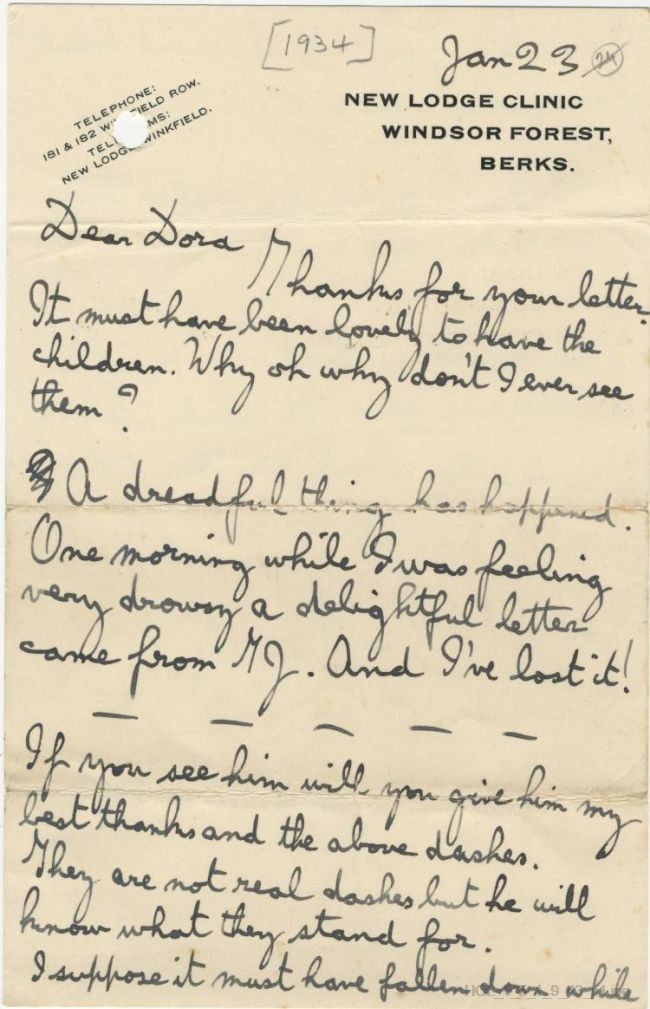 [1934]
Jan 23 24
NEW LODGE CLINIC
WINDSOR FOREST,
BERKS.
TELEPHONE:
181 & 182 WINKFIELD ROW.
TELEGRAMS:
NEW LODGE WINKFIELD.
Dear Dora
Thanks for your letter.
It must have been lovely to have the
children. Why oh why don't I ever see
them?
A dreadful thing has happened.
One morning while I was feeling
very drowsy a delightful letter
came from TJ. And I've lost it!
— — — — —
If you see him will you give him my
best thanks and the above dashes.
They are not real dashes but he will
know what they stand for.
I suppose it must have fallen down while